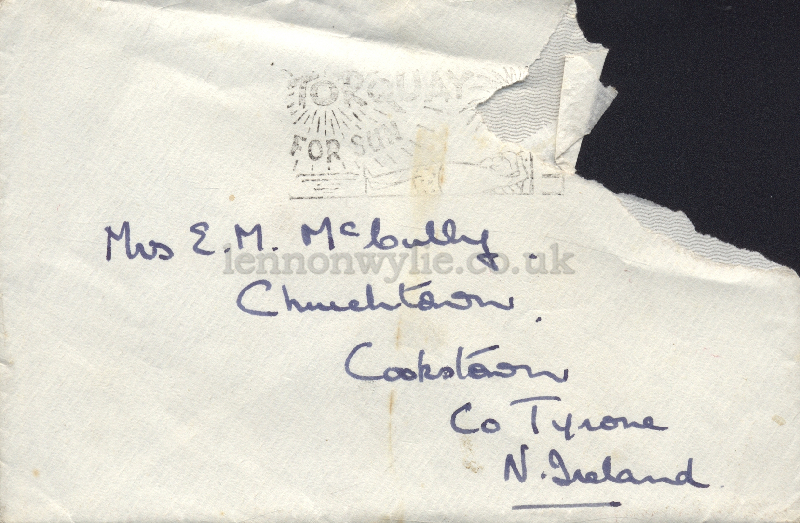 TORQUAY
FOR SUN
Mrs E. M. McCully.
lennonwylie.co.uk
Churchtown.
Cookstown
Co Tyrone
N. Ireland